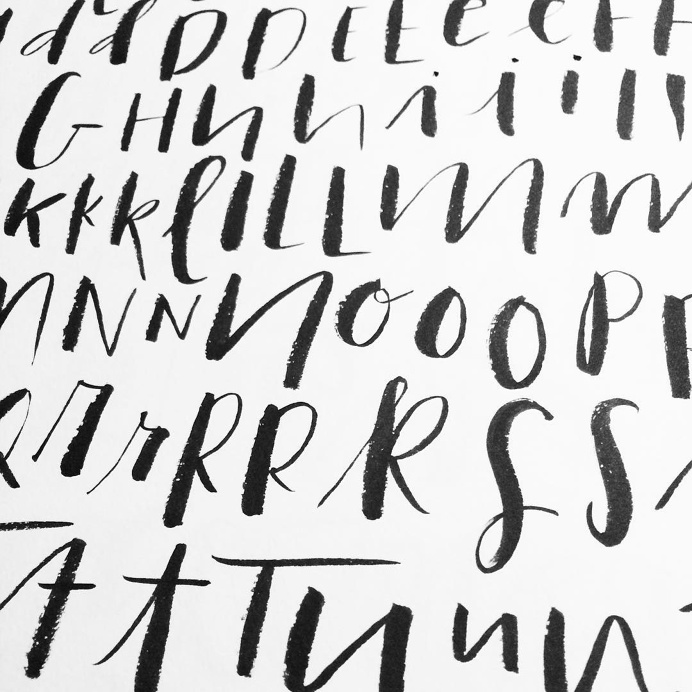 d d D D E E e e F F
G H h h i i i I
k k k l l L L m m
n N N n o O O P
R r r R R R S S
t t T u u